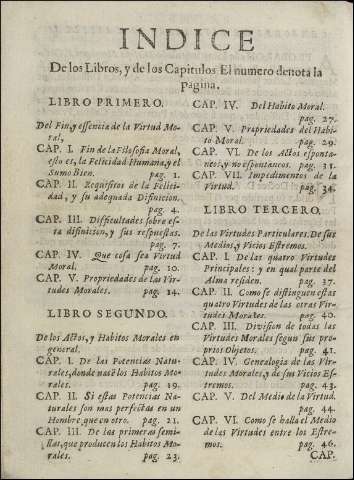 INDICE
De los Libros, y de los Capitulos El numero denota la
pagina.
LIBRO PRIMERO.
Del Fin, y essencia de la Virtud Mo-
ral,
CAP. I. Fin de la Filosofia Moral,
esto es, la Felicidad Humana, y el
Sumo Bien. pag. 1.
CAP. II. Requisitos de la Felici-
dad, y su adequada Difinicion.
pag. 4.
CAP. III. Difficultades sobre es-
ta difinicion, y sus respuestas.
pag. 7.
CAP. IV. Que cosa sea Virtud
Moral. pag. 10.
CAP. V. Propriedades de las Vir-
tudes Morales. pag. 14.
LIBRO SEGUNDO.
De los Actos, y Habitos Morales en
general.
CAP. I. De las Potencias Natu-
rales, donde nacẽ los Habitos Mo-
rales. pag. 19.
CAP. II. Si estas Potencias Na-
turales son mas perfectas en un
Hombre, que en otro. pag. 21.
CAP. III. De las primeras semi-
llas, que producen los Habitos Mo-
rales. pag. 23.
CAP. IV. Del Habito Moral.
pag. 27.
CAP. V. Propriedades del Habi-
to Moral. pag. 29.
CAP. VI. De los Actos esponta-
neos, y no espontaneos. pag. 31.
CAP. VII. Impedimentos de la
Virtud. pag. 34.
LIBRO TERCERO.
De las Virtudes Particulares. De sus
Medios, y Vicios Estremos.
CAP. I De las quatro Virtudes
Principales: y en qual parte del
Alma residen. pag. 37.
CAP. II. Como se distinguen estas
quatro Virtudes de las otras Vir-
tudes Morales. pag. 40.
CAP. III. Division de todas las
Virtudes Morales segun sus pro-
prios Objetos. pag. 41.
CAP. IV. Genealogia de las Vir-
tudes Morales, y de sus Vicios Es-
tremos. pag. 43.
CAP. V. Del Medio de la Virtud.
pag. 44.
CAP. VI. Como se halla el Medio
de las Virtudes entre los Estre-
mos. pag. 46.
CAP.